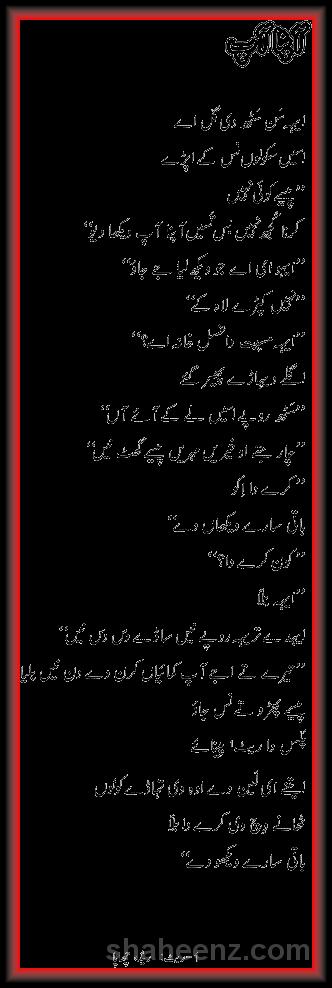 اپنا آپ
ایہہ سن سٹھ دی گل اے
اسیں سکولوں نس کے اپڑے
"پیسے کوئی نئیں
کرنا کُجھ نئیں بس تُسیں اپنا آپ دیکھا دیو"
"ایہو ای اے جو ویکھ لیا جے جاؤ"
"نئیں کپڑے لاہ کے"
"ایہہ مسیت دا غسل خانہ اے؟"
اگلے دیہاڑے پھیر گئے
"سٹھ روپے اسیں لے کے آئے آں"
"چار جنے او تُریں سریں پیسے گھٹ نیں"
"کرے دا اِکو
باقی سارے دیکھاں دے"
"کون کرے دا؟"
"ایہہ بلّا
ایہدے تریہہ روپے نیں ساڈے دس دس نیں"
"تیرے تے اجے آپ کمائیاں کرن دے دن نیں بلیا
پیسے پھڑو تے نس جاؤ
پُلس دا ریٹ اپنا اے
اینے ای لین دے اوہ وی تہاڈے کولوں
تھانے وچ وی کرے دا بلّا
باقی سارے دیکھو دے"
shaheenz.com